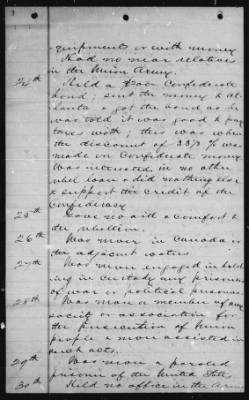 equipments or with money
Had no near relatives
in the Union Army.
24th Held a $500 Confederate
bond; sent the money to At-
lanta & got the bond as he
was told it was good to pay
taxes with; this was when
the discount of 33⅓ % was
made on Confederate money
Was interested in no other
rebel loan & did nothing else
to support the credit of the
Confederacy
25th Gave no aid & comfort to
the rebellion.
26th Was never in Canada or
the adjacent waters
27th Was never engaged in hold-
ing in custody any prisoners
of war or political prisoners
28th Was never a member of any
society or association for
the persecution of Union
people & never assisted in
such acts.
29th Was never a paroled
prisoner of the United States
30th Held no office in the Army